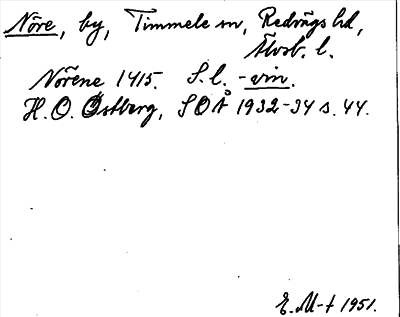 Nöre, by, Timmele sn, Redvägs hd,
Älvsb. l.
Nörene 1415. S.l. -vin.
H. O. Östberg, SOÅ 1932-34 s. 44.
E. M-t 1951.